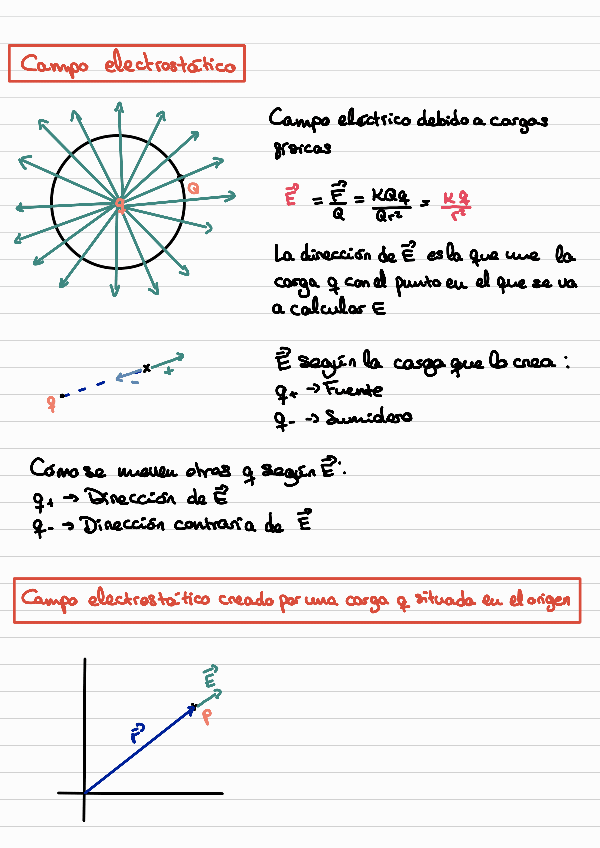 Campo electrostático
Q
q
Campo eléctrico debido a cargas
físicas
E⃗ = F⃗/Q = KQq/Qr² = Kq/r²
La dirección de E⃗ es la que une la
carga q con el punto en el que se va
a calcular E
q - x +
E⃗ según la carga que lo crea:
q+ → Fuente
q- → Sumidero
Cómo se mueven otras q según E⃗:
q+ → Dirección de E⃗
q- → Dirección contraria de E⃗
Campo electrostático creado por una carga q situada en el origen
E⃗
P
r⃗